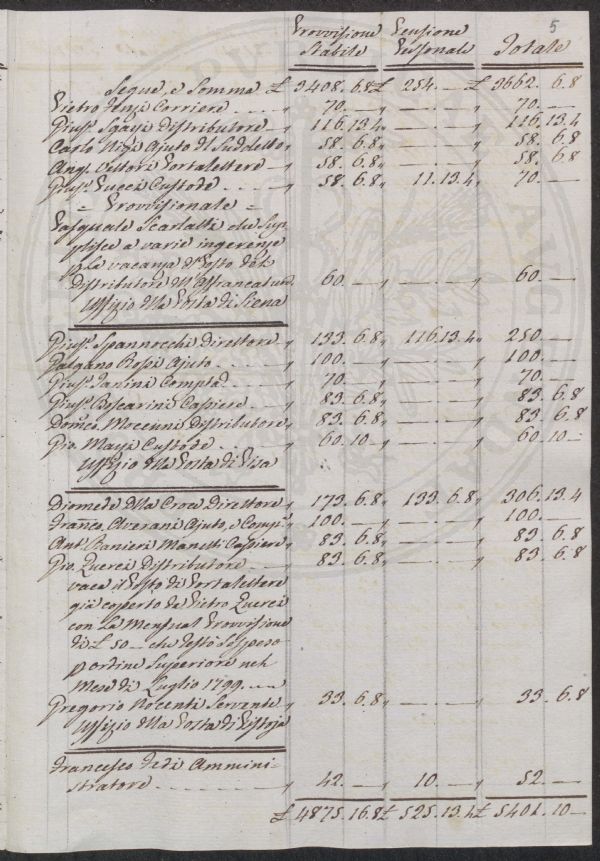 5
Provvisione Stabile Pensione Personale Totale
Segue, e Somma £ 3408. 6.8 £ 254. — £ 3662. 6.8
Pietro Tenzi Corriere - - - „ 70. — „ — . — „ 70. —
Gius.e Sgazi Distributore - „ 116.13.4 „ — . — „ 116.13.4
Carlo Nizzi Ajuto al Suddetto „ 58. 6.8 „ — . — „ 58. 6.8
Ang.o Vettori Portalettere - „ 58. 6.8 „ — . — „ 58. 6.8
Gius.e Lucci Custode - - - „ 58. 6.8 „ 11.13.4 „ 70. —
= Provvisionale =
Pasquale Scarlatti che Sup-
plisce a varie ingerenze
p. La vacanza d'Posto del
Distributore dll'Affrancatura „ 60. — „ — . — „ 60. —
Uffizio dlla Posta di Siena
Gius.e Spannocchi Direttore „ 133. 6.8 „ 116.13.4 „ 250. —
Galgano Rossi Ajuto - - - „ 100. — „ — . — „ 100. —
Gius.e Janini Comp.ta - - „ 70. — „ — . — „ 70. —
Gius.e Boscarini Cassiere - „ 83. 6.8 „ — . — „ 83. 6.8
Dom.co Moccenni Distributore „ 83. 6.8 „ — . — „ 83. 6.8
Gio. Mazzi Custode - - - „ 60.10 — „ — . — „ 60.10 —
Uffizio dlla Posta di Pisa
Diomede dlla Croce Direttore „ 173. 6.8 „ 133. 6.8 „ 306.13.4
Franco. Averani Ajuto, e Comp.ta „ 100. — „ — . — „ 100. —
Ant.o Ranieri Manetti Cassiere „ 83. 6.8 „ — . — „ 83. 6.8
Gio. Querci Distributore - - „ 83. 6.8 „ — . — „ 83. 6.8
vaca il Posto di Portalettere
già coperto da Pietro Querci
con La Mensual Provvisione
di £ 50 — che restò Sospeso
p ordine Superiore nel
Mese di Luglio 1799. - -
Gregorio Nocenti Servente „ 33. 6.8 „ — . — „ 33. 6.8
Uffizio dlla Posta di Pistoja
Francesco Dedi Ammini-
stratore - - - - „ 42. — „ 10. — „ 52. —
£ 4875.16.8 £ 525.13.4 £ 5401.10 —